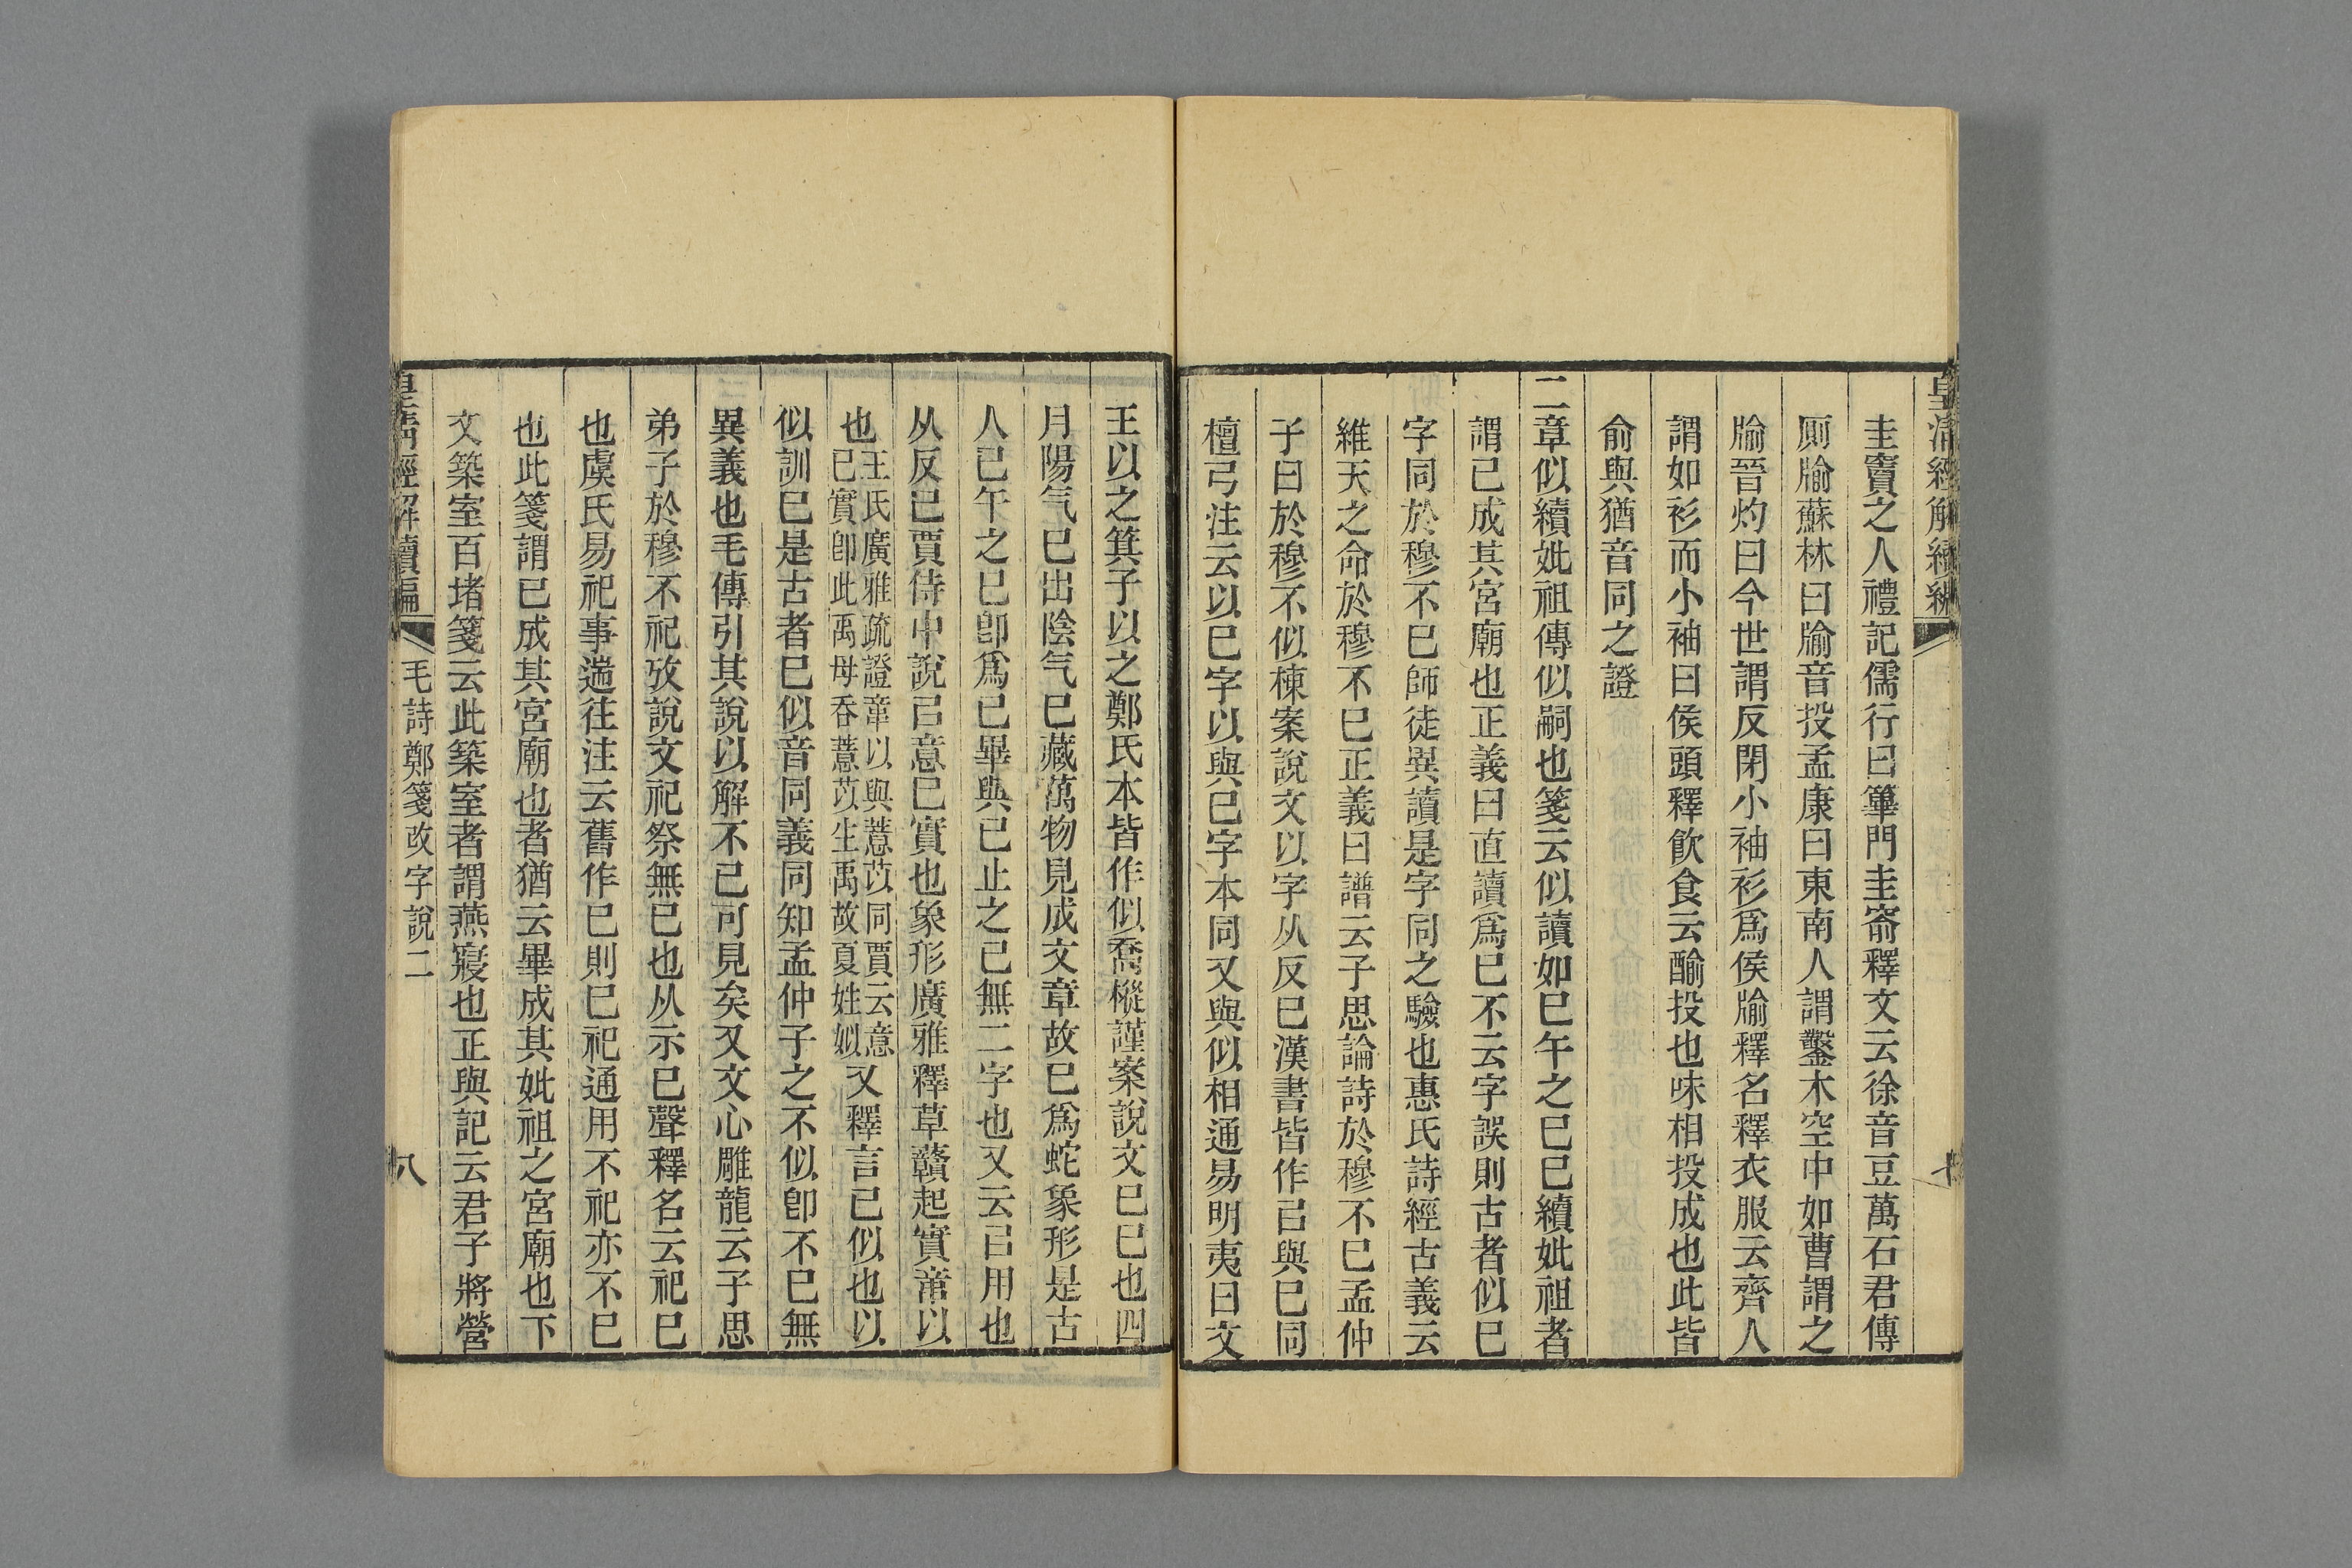 皇清經解續編
圭竇之人禮記儒行曰篳門圭窬釋文云徐音豆萬石君傳
厠牏蘇林曰牏音投孟康曰東南人謂鑿木空中如曹謂之
牏晉灼曰今世謂反閉小袖衫爲侯牏釋名釋衣服云齊人
謂如衫而小袖曰侯頭釋飮食云酳投也味相投成也此皆
俞與猶音同之證
二章似續妣祖傳似嗣也箋云似讀如巳午之巳巳續妣祖者
謂已成其宮廟也正義曰直讀爲巳不云字誤則古者似巳
字同於穆不巳師徒異讀是字同之驗也惠氏詩經古義云
維天之命於穆不巳正義曰譜云子思論詩於穆不巳孟仲
子曰於穆不似棟案說文以字从反巳漢書皆作㠯與巳同
檀弓注云以巳字以與巳字本同又與似相通易明夷曰文
王以之箕子以之鄭氏本皆作似喬樅謹案說文巳巳也四
月陽气巳出陰气巳藏萬物見成文章故巳爲蛇象形是古
人巳午之巳卽爲巳畢與巳止之巳無二字也又云㠯用也
从反巳賈侍中說㠯意巳實也象形廣雅釋草䕪起實𦼮以
也王氏廣雅疏證𦼮以與薏苡同賈云意
巳實卽此禹母吞薏苡生禹故夏姓姒又釋言巳似也以
似訓巳是古者巳似音同義同知孟仲子之不似卽不巳無
異義也毛傳引其說以解不已可見矣又文心雕龍云子思
弟子於穆不祀攷說文祀祭無巳也从示巳聲釋名云祀巳
也虞氏易祀事遄往注云舊作巳則巳祀通用不祀亦不巳
也此箋謂已成其宮廟也者猶云畢成其妣祖之宮廟也下
文築室百堵箋云此築室者謂燕寢也正與記云君子將營
皇清經解續編 毛詩鄭箋改字說二 八